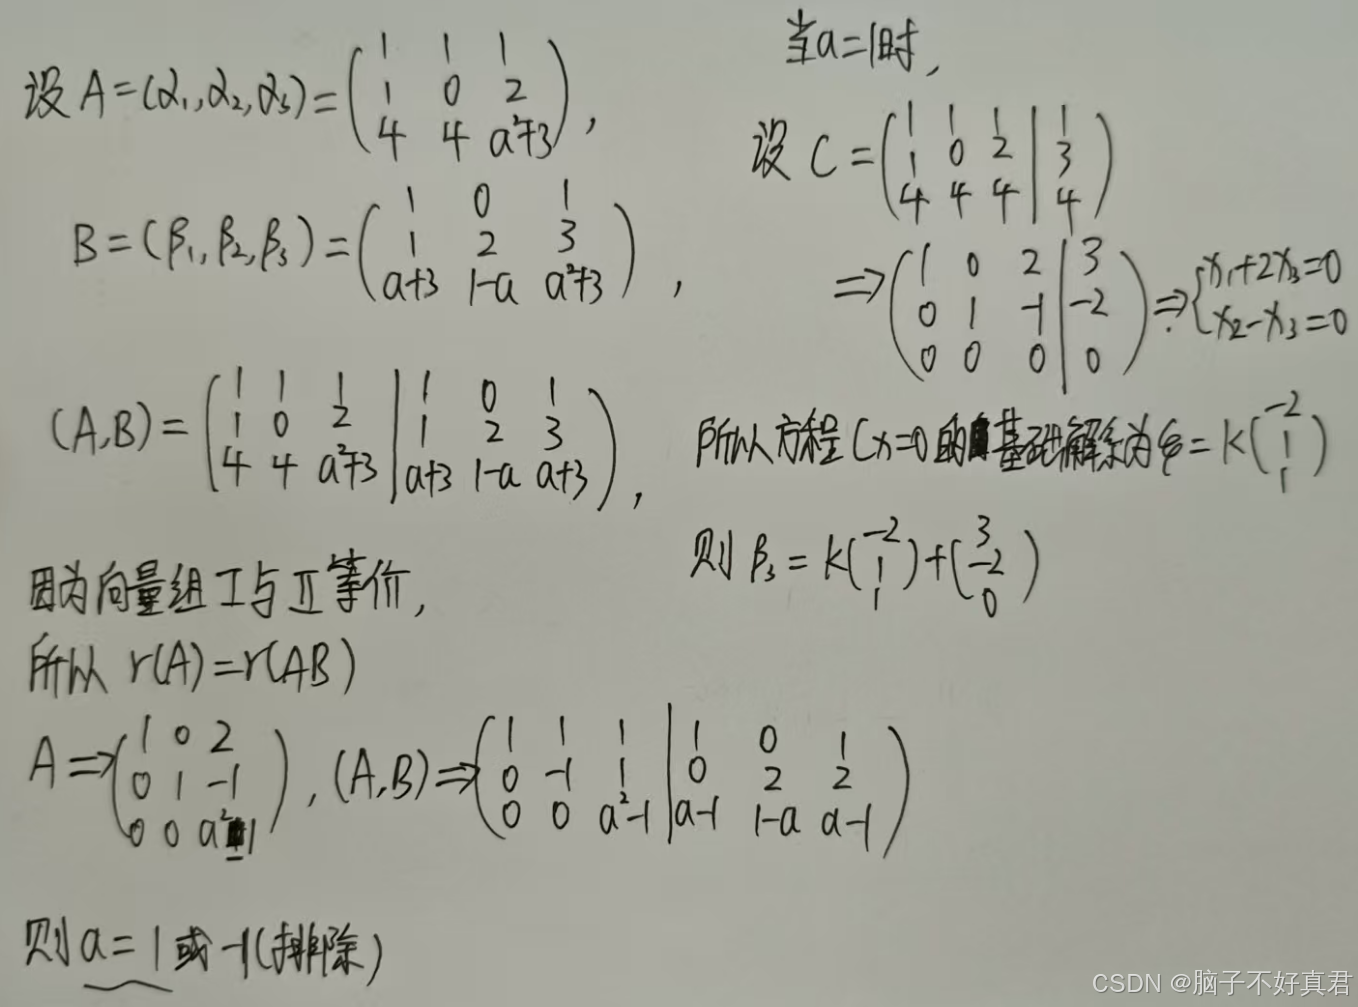 设 A=(α₁,α₂,α₃)=(1 1 1
1 0 2
4 4 a²+3),
B=(β₁,β₂,β₃)=(1 0 1
1 2 3
a+3 1-a a²+3),
(A,B)=(1 1 1 | 1 0 1
1 0 2 | 1 2 3
4 4 a²+3 | a+3 1-a a+3),
因为向量组 I 与 II 等价,
所以 r(A)=r(AB)
A⇒(1 0 2
0 1 -1
0 0 a²-1), (A,B)⇒(1 1 1 | 1 0 1
0 -1 1 | 0 2 2
0 0 a²-1 | a-1 1-a a-1)
则 a=1 或 -1(排除)
当a=1时,
设 C=(1 1 1 | 1
1 0 2 | 3
4 4 4 | 4)
⇒(1 0 2 | 3
0 1 -1 | -2
0 0 0 | 0)⇒{x₁+2x₃=0
x₂-x₃=0
所以方程Cx=0的基础解系为ξ=k(-2
1
1)
则 β₃=k(-2
1
1)+(3
-2
0)
CSDN @脑子不好真君